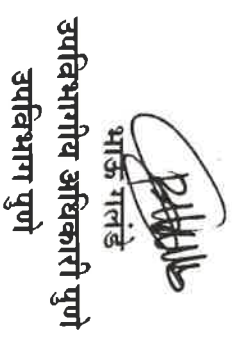 भाऊ गलंडे
उपविभागीय अधिकारी पुणे
उपविभाग पुणे